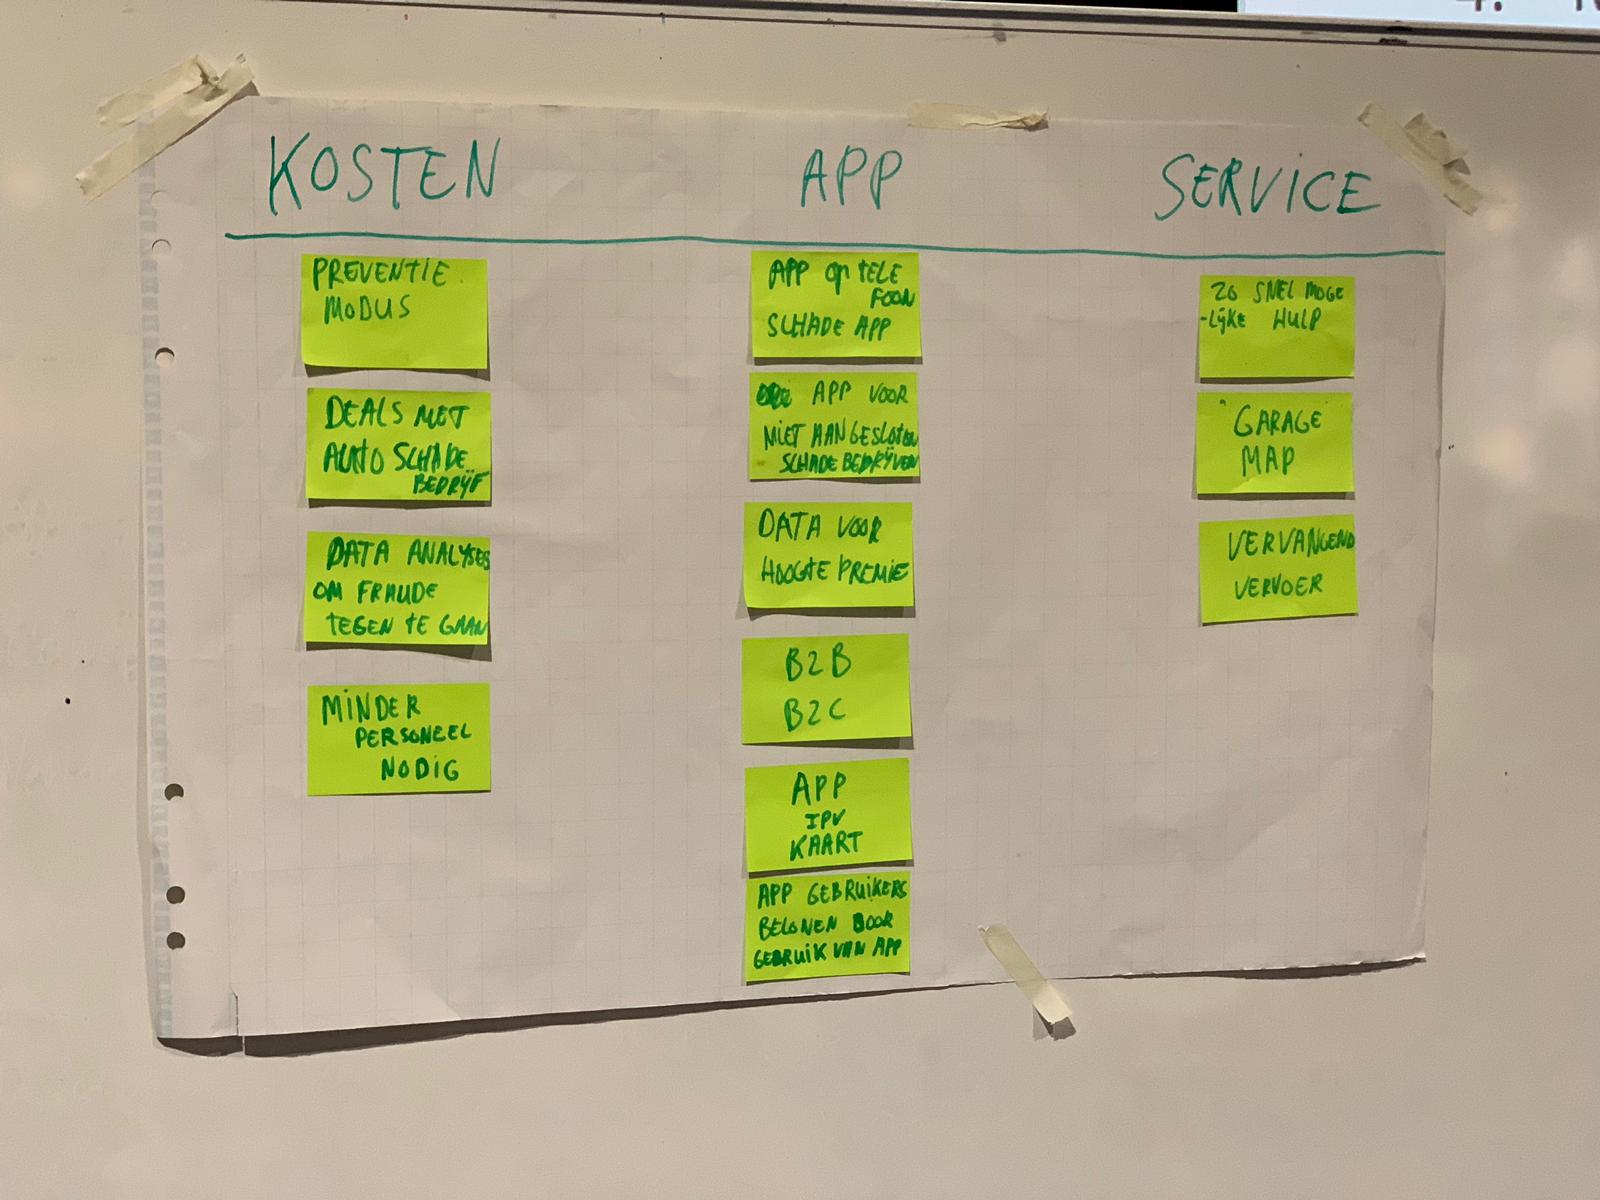 KOSTEN
APP
SERVICE
PREVENTIE
MODUS
DEALS MET
AUTO SCHADE
BEDRIJF
DATA ANALYSES
OM FRAUDE
TEGEN TE GAAN
MINDER
PERSONEEL
NODIG
APP op TELE
FOON
SCHADE APP
APP VOOR
NIET AANGESLOTEN
SCHADEBEDRIJVEN
DATA VOOR
HOOGTE PREMIE
B2B
B2C
APP
IPV
KAART
APP GEBRUIKERS
BELONEN DOOR
GEBRUIK VAN APP
ZO SNEL MOGE
-LIJKE HULP
GARAGE
MAP
VERVANGEND
VERVOER